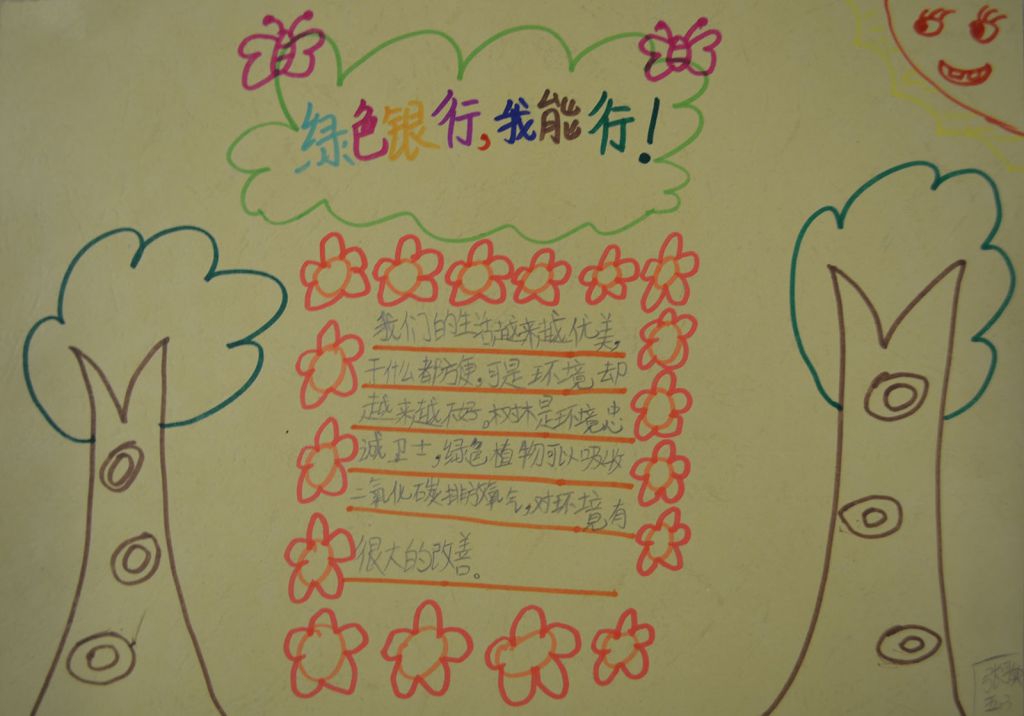 绿色银行,我能行!
我们的生活越来越优美,
干什么都方便,可是环境却
越来越不好。树木是环境忠
诚卫士,绿色植物可以吸收
二氧化碳排放氧气,对环境有
很大的改善。